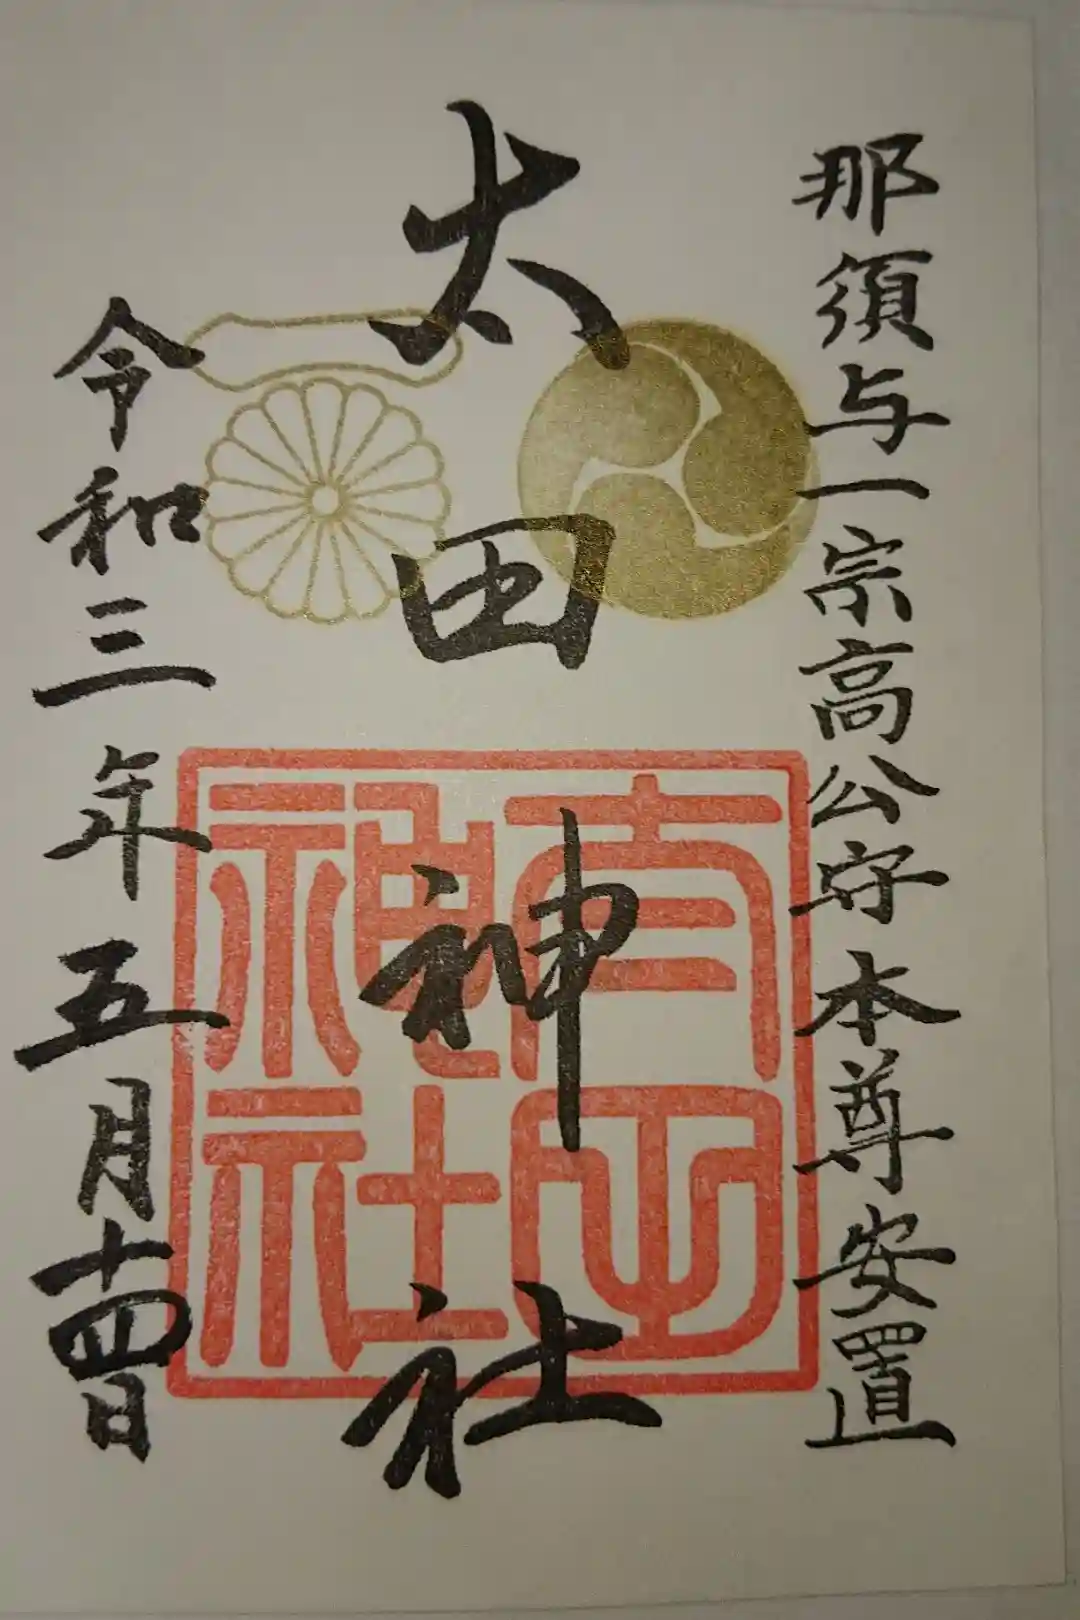 那須与一宗高公守本尊安置
太田神社
令和三年五月十四日